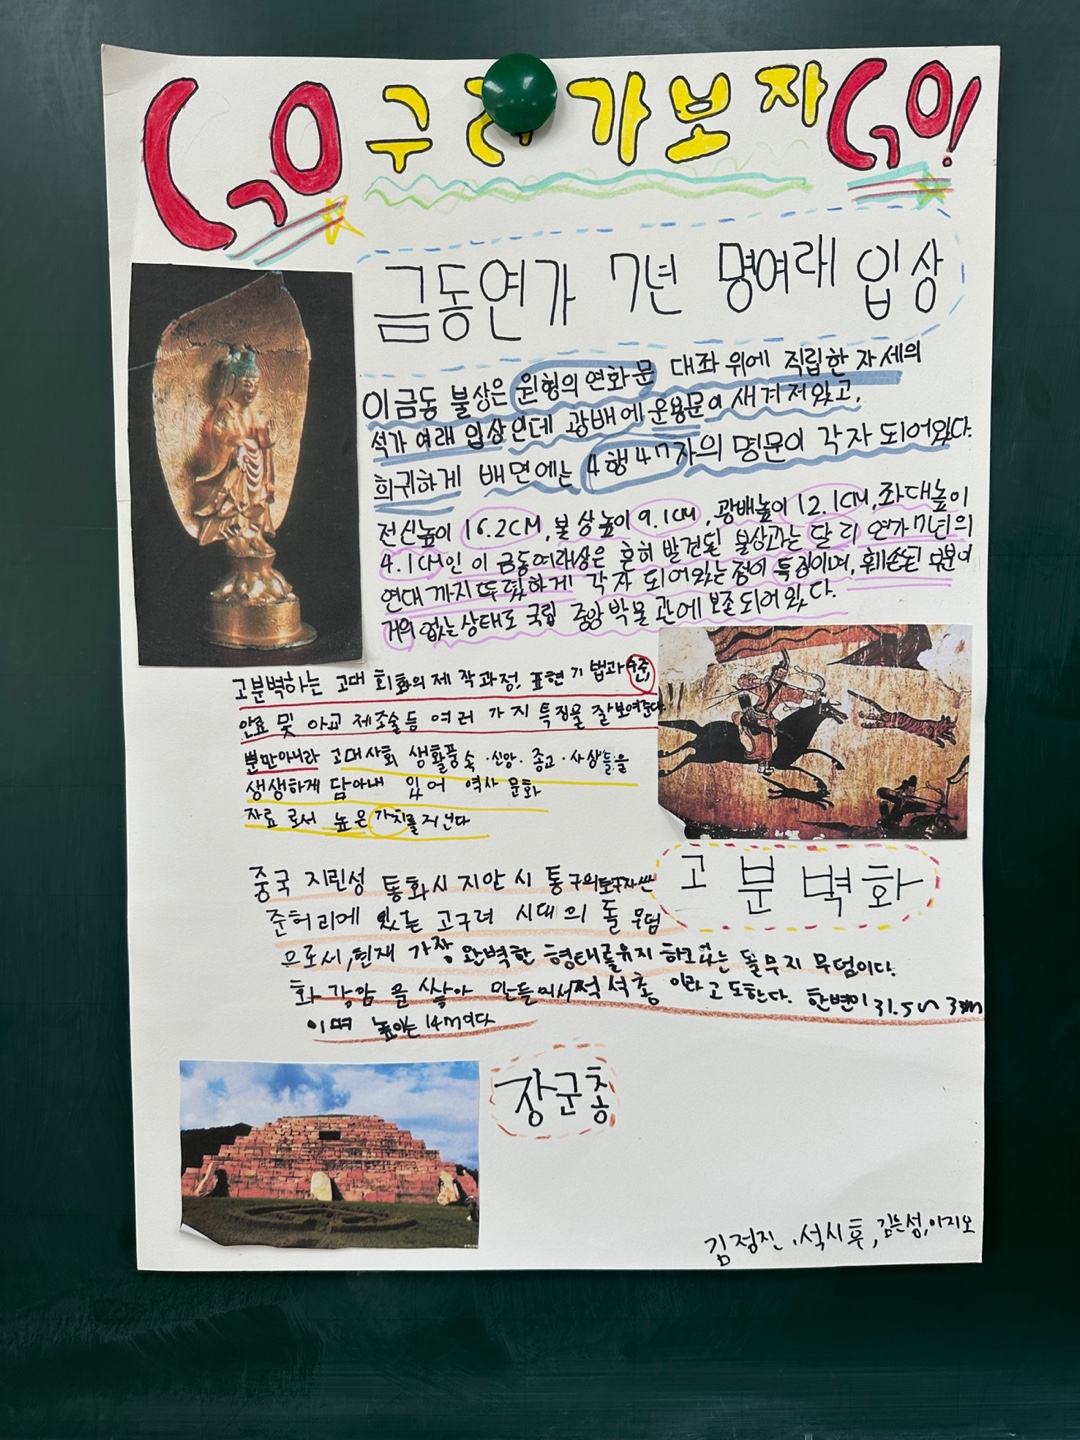 GO 구려가보자 GO!
금동연가 7년 명여래 입상
이금동 불상은 원형의 연화문 대좌 위에 직립한 자세의
석가 여래 입상인데 광배에 운용문이 새겨져있고,
희귀하게 배면에는 4행47자의 명문이 각자 되어있다.
전신높이 16.2CM, 불상높이 9.1CM, 광배높이 12.1CM, 좌대높이
4.1CM인 이 금동여래상은 흔히 발견된 불상과는 달리 연가7년의
연대까지 뚜렷하게 각자 되어있는 점이 특징이며, 훼손된 부분이
거의 없는상태로 국립 중앙 박물관에 보존되어 있다.
고분벽하는 고대 회화의 제작과정, 표현 기법과 수준,
안료 및 아교 제조술등 여러 가지 특징을 잘보여준다
뿐만아니라 고대사회 생활풍속·신앙·종교·사상들을
생생하게 담아내 있어 역사 문화
자료로서 높은 가치를지닌다
고분벽화
중국 지린성 통화시 지안시 통구의
준허리에 있는 고구려 시대의 돌 무덤
으로서, 현재 가장 완벽한 형태를유지 하고있는 돌무지 무덤이다.
화강암을 쌓아 만들어서적석총 이라고도한다. 한변이 31.5~
이며 높이는 14m이다
장군총
김정진, 석시후, 김은성, 이지오